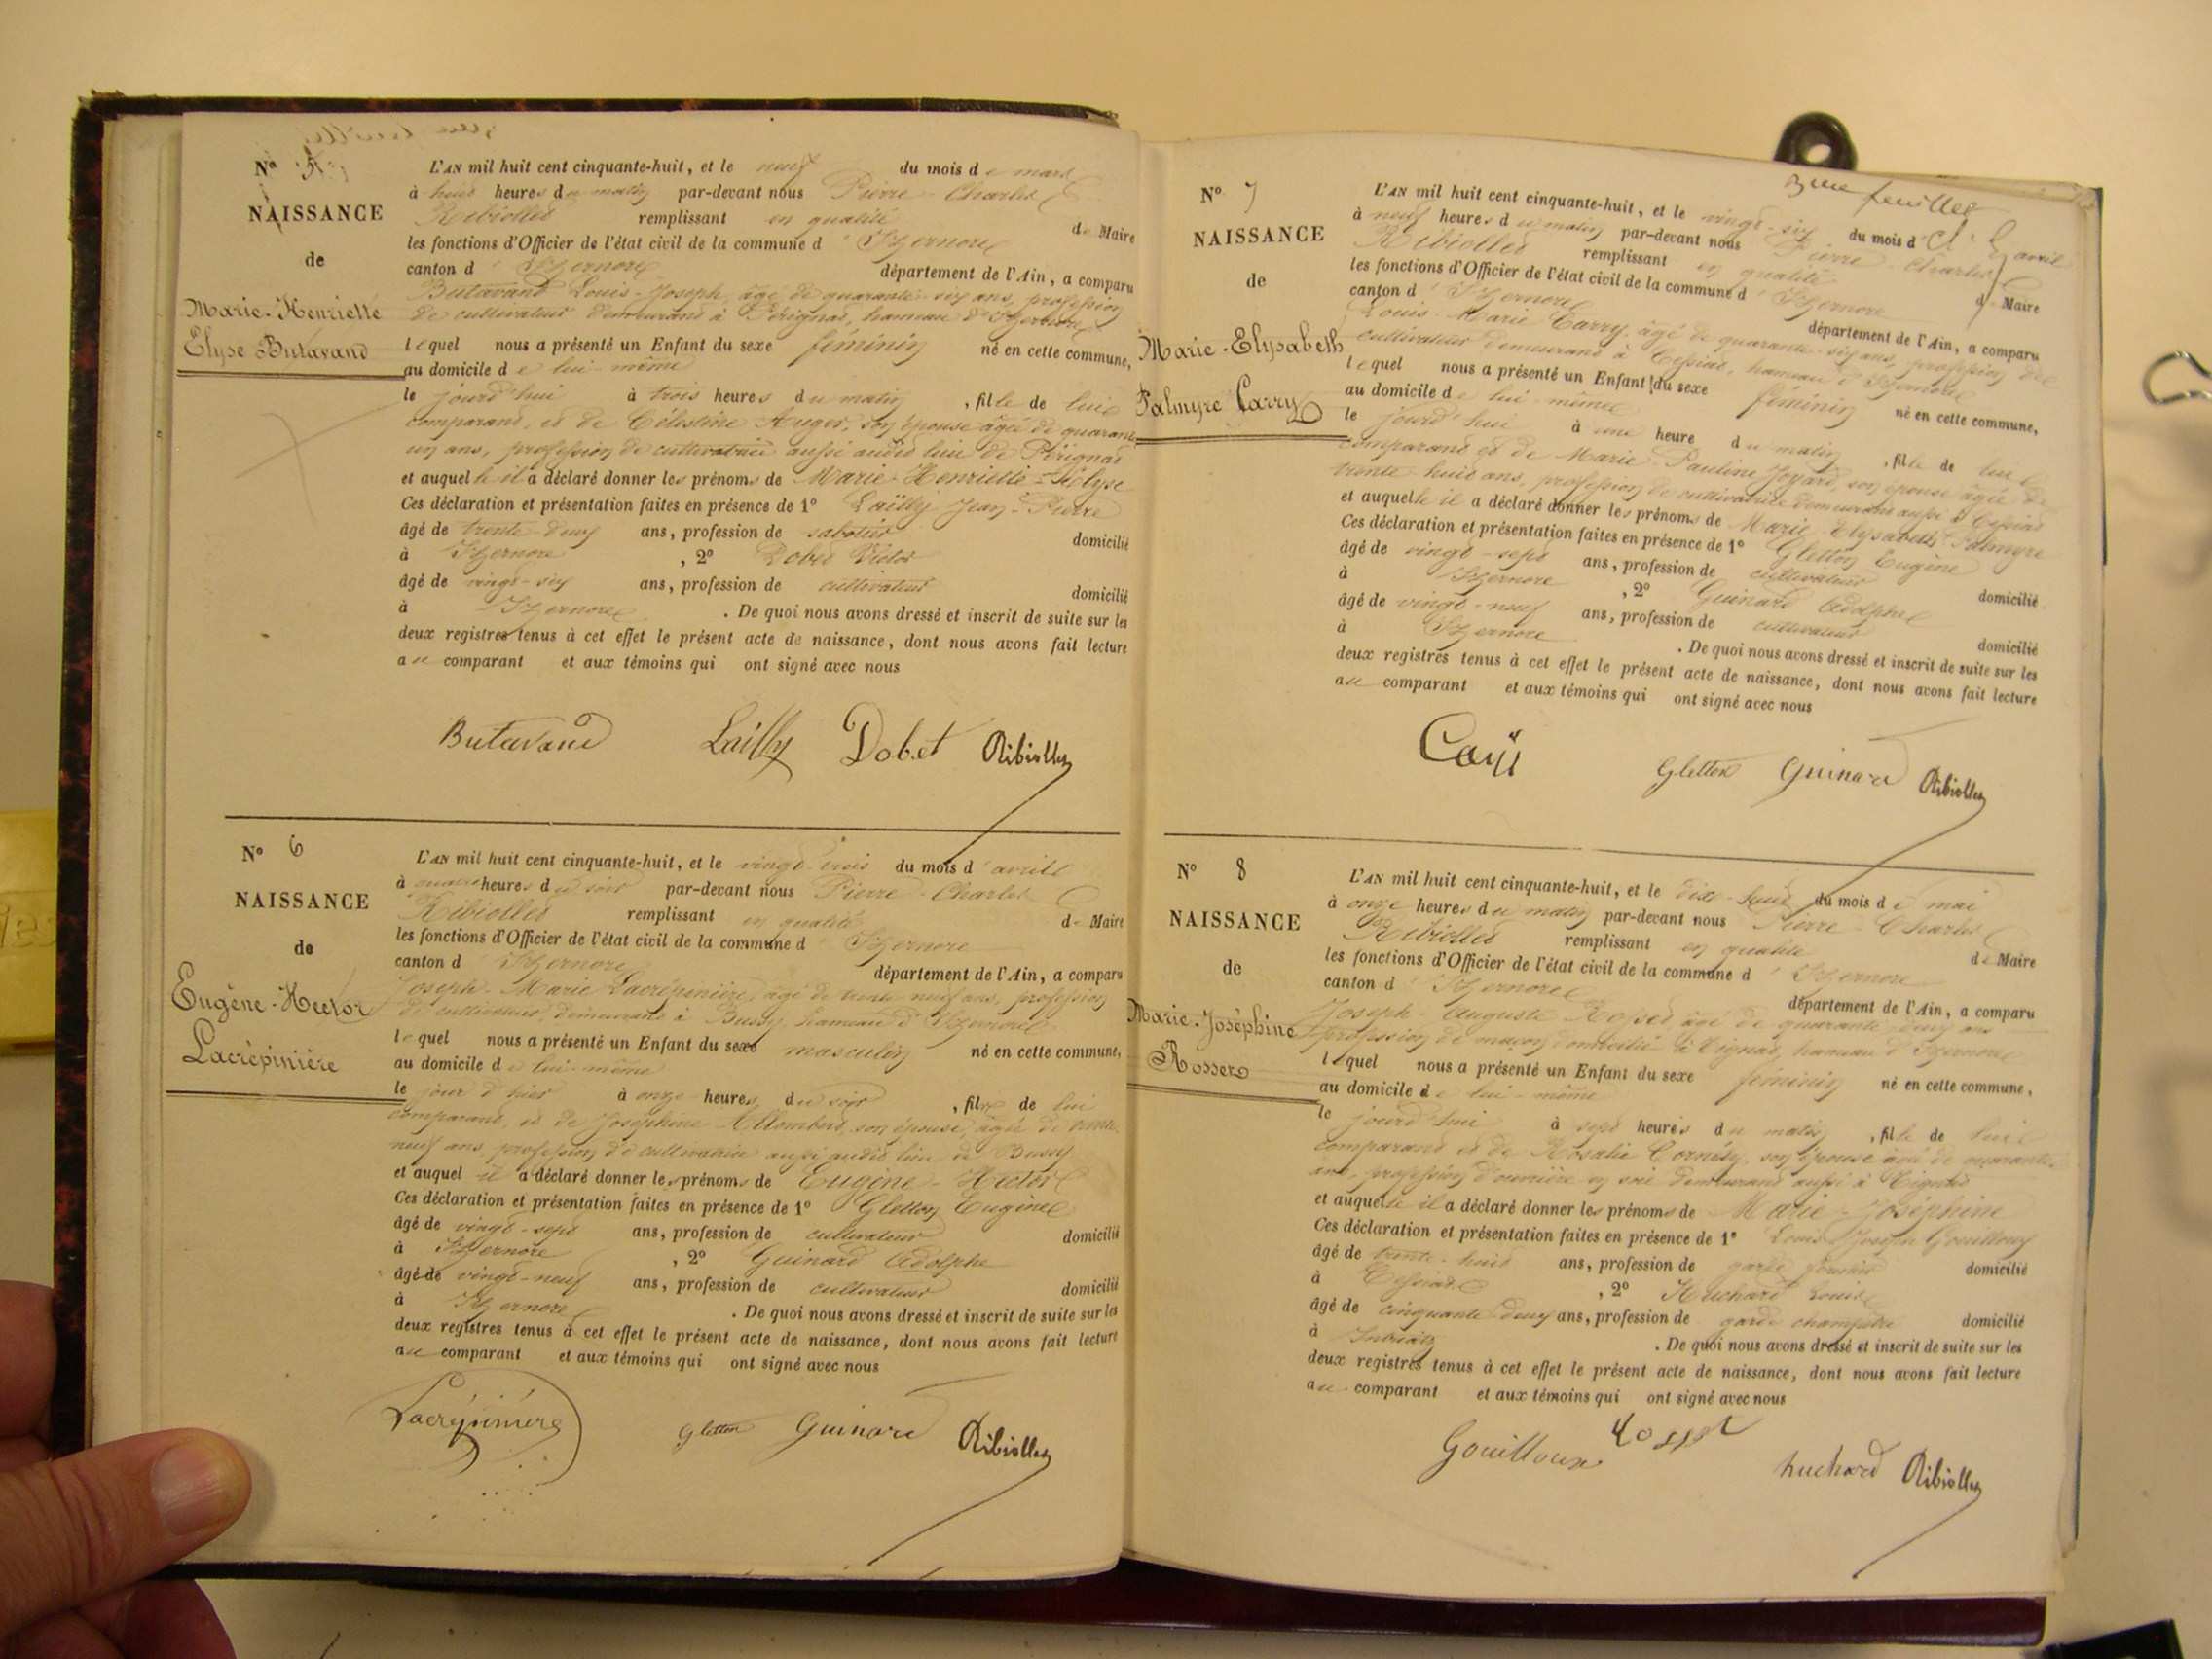 Nº 5
NAISSANCE
de
Marie-Henriette
Elyse Butavand
L'AN mil huit cent cinquante-huit, et le neuf du mois de mars
à huit heures du matin par-devant nous Pierre-Charles
Ribiollet remplissant en qualité de Maire
les fonctions d'Officier de l'état civil de la commune d'Izernore
canton d'Izernore département de l'Ain, a comparu
Butavand Louis-Joseph, âgé de quarante-six ans, profession
de cultivateur demeurant à Pérignat, hameau d'Izernore
lequel nous a présenté un Enfant du sexe féminin né en cette commune,
au domicile de lui-même
le jourd'hui à trois heures du matin, fille de lui
comparant, et de Célestine Auger, son épouse âgée de quarante
un ans, profession de cultivatrice aussi audit lieu de Pérignat
et auquelle il a déclaré donner les prénoms de Marie-Henriette-Elyse
Ces déclaration et présentation faites en présence de 1º Lailly Jean-Pierre
âgé de trente-deux ans, profession de sabotier domicilié
à Izernore, 2º Dobet Victor
âgé de vingt-six ans, profession de cultivateur domicilié
à Izernore. De quoi nous avons dressé et inscrit de suite sur les
deux registres tenus à cet effet le présent acte de naissance, dont nous avons fait lecture
au comparant et aux témoins qui ont signé avec nous
Butavand Lailly Dobet Ribiollet
Nº 6
NAISSANCE
de
Eugène-Hector
Lacrépinière
L'AN mil huit cent cinquante-huit, et le vingt-trois du mois d'avril
à quatre heures du soir par-devant nous Pierre-Charles
Ribiollet remplissant en qualité de Maire
les fonctions d'Officier de l'état civil de la commune d'Izernore
canton d'Izernore département de l'Ain, a comparu
Joseph-Marie Lacrépinière, âgé de trente neuf ans, profession
de cultivateur, demeurant à Bussy, hameau d'Izernore
lequel nous a présenté un Enfant du sexe masculin né en cette commune,
au domicile de lui-même
le jour d'hier à onze heures du soir, fils de lui
comparant, et de Joséphine Allombert, son épouse, âgée de trente
neuf ans, profession de cultivatrice aussi audit lieu de Bussy
et auquel il a déclaré donner les prénoms de Eugène-Hector
Ces déclaration et présentation faites en présence de 1º Gletton Eugène
âgé de vingt-sept ans, profession de cultivateur domicilié
à Izernore, 2º Guinard Adolphe
âgé de vingt-neuf ans, profession de cultivateur domicilié
à Izernore. De quoi nous avons dressé et inscrit de suite sur les
deux registres tenus à cet effet le présent acte de naissance, dont nous avons fait lecture
au comparant et aux témoins qui ont signé avec nous
Lacrépinière Gletton Guinard Ribiollet
3me feuillet
Nº 7
NAISSANCE
de
Marie-Elysabeth
Palmyre Carry
L'AN mil huit cent cinquante-huit, et le vingt-six du mois d'avril
à neuf heures du matin par-devant nous Pierre-Charles
Ribiollet remplissant en qualité de Maire
les fonctions d'Officier de l'état civil de la commune d'Izernore
canton d'Izernore département de l'Ain, a comparu
Louis-Marie Carry, âgé de quarante-six ans, profession de
cultivateur demeurant à Ceyssiat, hameau d'Izernore
lequel nous a présenté un Enfant du sexe féminin né en cette commune,
au domicile de lui-même
le jourd'hui à une heure du matin, fille de lui
comparant et de Marie-Pauline Joyard, son épouse âgée de
trente-huit ans, profession de cultivatrice demeurant aussi à
et auquelle il a déclaré donner les prénoms de Marie-Elysabeth-Palmyre
Ces déclaration et présentation faites en présence de 1º Gletton Eugène
âgé de vingt-sept ans, profession de cultivateur domicilié
à Izernore, 2º Guinard Adolphe
âgé de vingt-neuf ans, profession de cultivateur domicilié
à Izernore. De quoi nous avons dressé et inscrit de suite sur les
deux registres tenus à cet effet le présent acte de naissance, dont nous avons fait lecture
au comparant et aux témoins qui ont signé avec nous
Gletton Guinard Ribiollet
Nº 8
NAISSANCE
de
Marie-Joséphine
Rosset
L'AN mil huit cent cinquante-huit, et le dix-huit du mois de mai
à onze heures du matin par-devant nous Pierre-Charles
Ribiollet remplissant en qualité de Maire
les fonctions d'Officier de l'état civil de la commune d'Izernore
canton d'Izernore département de l'Ain, a comparu
Joseph-Auguste Rosset, âgé de quarante-deux ans
profession de maçon domicilié à Tignat, hameau d'Izernore
lequel nous a présenté un Enfant du sexe féminin né en cette commune,
au domicile de lui-même
le jourd'hui à sept heures du matin, fille de lui
comparant et de Rosalie Cornély, son épouse âgée de quarante
ans, profession d'ouvrière en soie demeurant aussi à Tignat
et auquelle il a déclaré donner les prénoms de Marie-Joséphine
Ces déclaration et présentation faites en présence de 1º Louis Joseph Gouilloux
âgé de trente-huit ans, profession de garde forestier domicilié
à Ceyssiat, 2º Huchard Louis
âgé de cinquante-deux ans, profession de garde champêtre domicilié
à Intriat. De quoi nous avons dressé et inscrit de suite sur les
deux registres tenus à cet effet le présent acte de naissance, dont nous avons fait lecture
au comparant et aux témoins qui ont signé avec nous
Gouilloux Rosset huchard Ribiollet